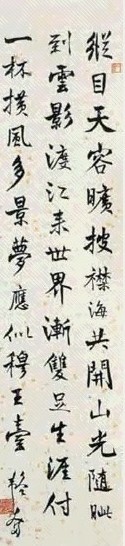 縱目天容曠披襟海共開山光隨眦
到雲影渡江來世界漸雙足生涯付
一杯橫風多景夢應似穆王臺